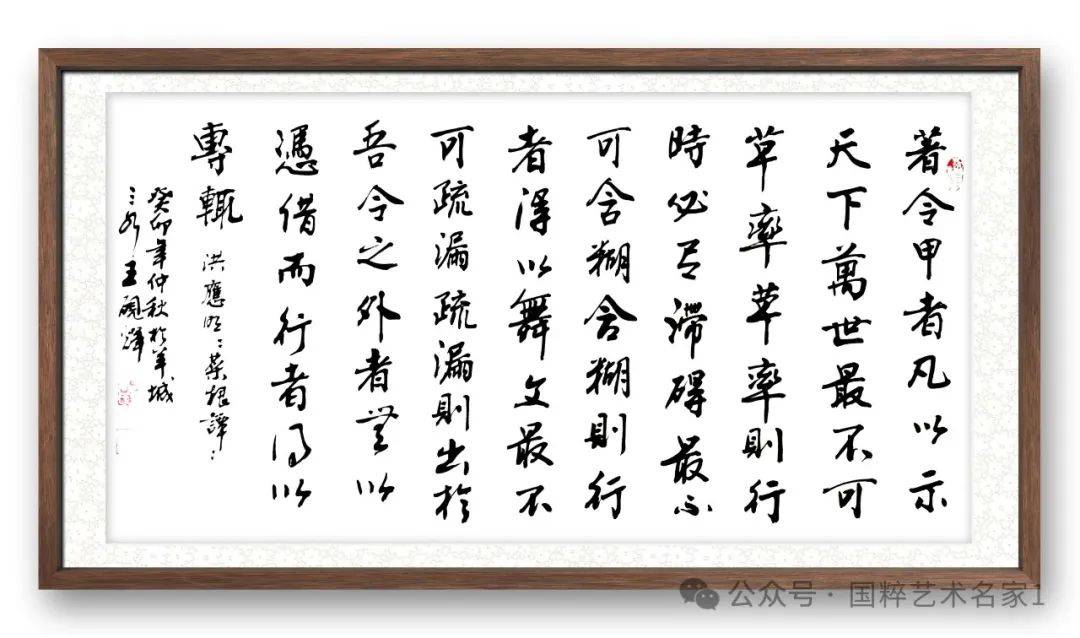 著令甲者凡以示
天下萬世最不可
草率草率則行
時必有滯碍最不
可含糊含糊則行
者得以舞文最不
可疏漏疏漏則出於
吾令之外者無以
憑借而行者得以
專輒
洪應明:菜根譚:
癸卯年仲秋於羊城
三水王
公众号 · 国粹艺术名家1